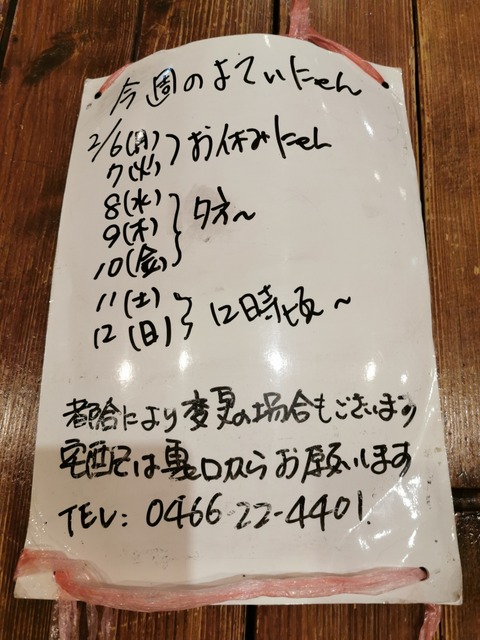 今週のよていにゃん
2/6(月)
7(火) お休みにゃん
8(水)
9(木) 夕方~
10(金)
11(土)
12(日) 12時頃~
都合により変更の場合もございます
宅配は裏口からお願いします
TEL: 0466-22-4401